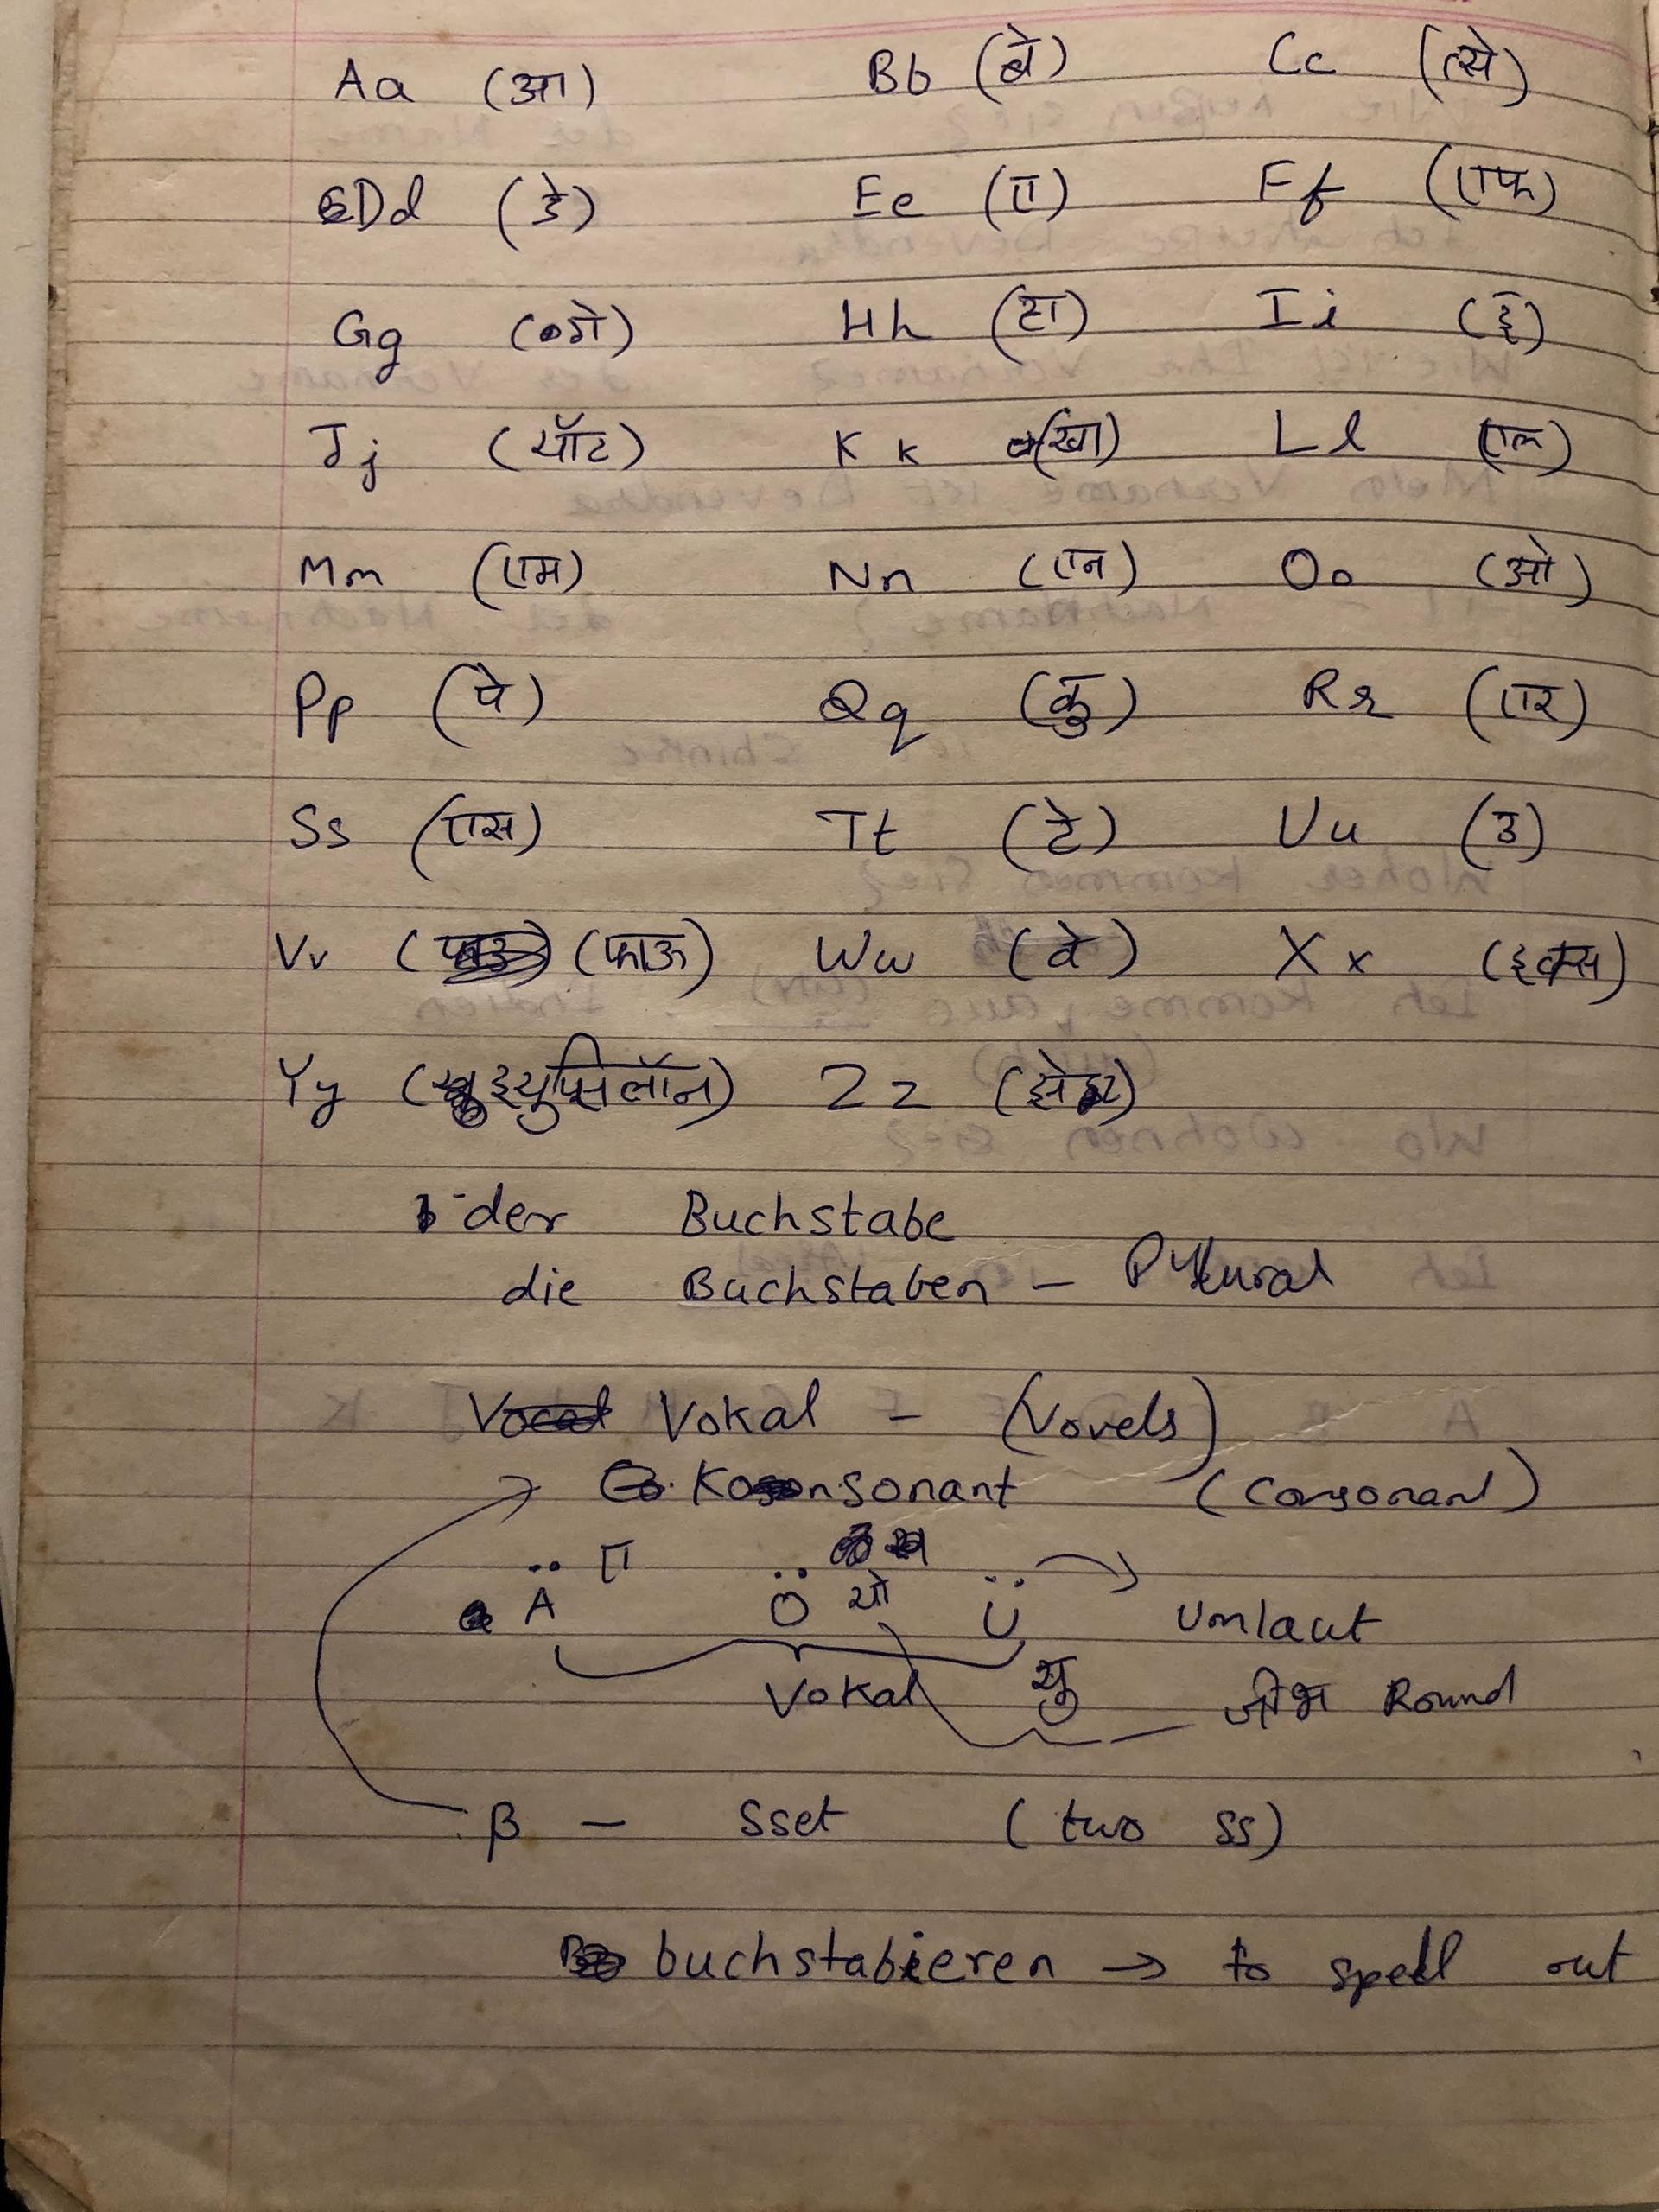 Aa (आ) Bb (बे) Cc (त्से)
Dd (डे) Ee (ए) Ff (एफ)
Gg (गे) Hh (हा) Ii (ई)
Jj (यॉट) Kk (खा) Ll (एल)
Mm (एम) Nn (एन) Oo (ओ)
Pp (पे) Qq (कु) Rr (एर)
Ss (एस) Tt (टे) Uu (उ)
Vv (फाऊ) Ww (वे) Xx (इक्स)
Yy (इयुप्सिलॉन) Zz (झेट)
der Buchstabe
die Buchstaben - Plural
Vokal - (Vovels)
Konsonant (Consonant)
Ä ए Ö यो Ü Umlaut
Vokal यु जीभ Round
β - Sset (two ss)
buchstabieren → to spell out